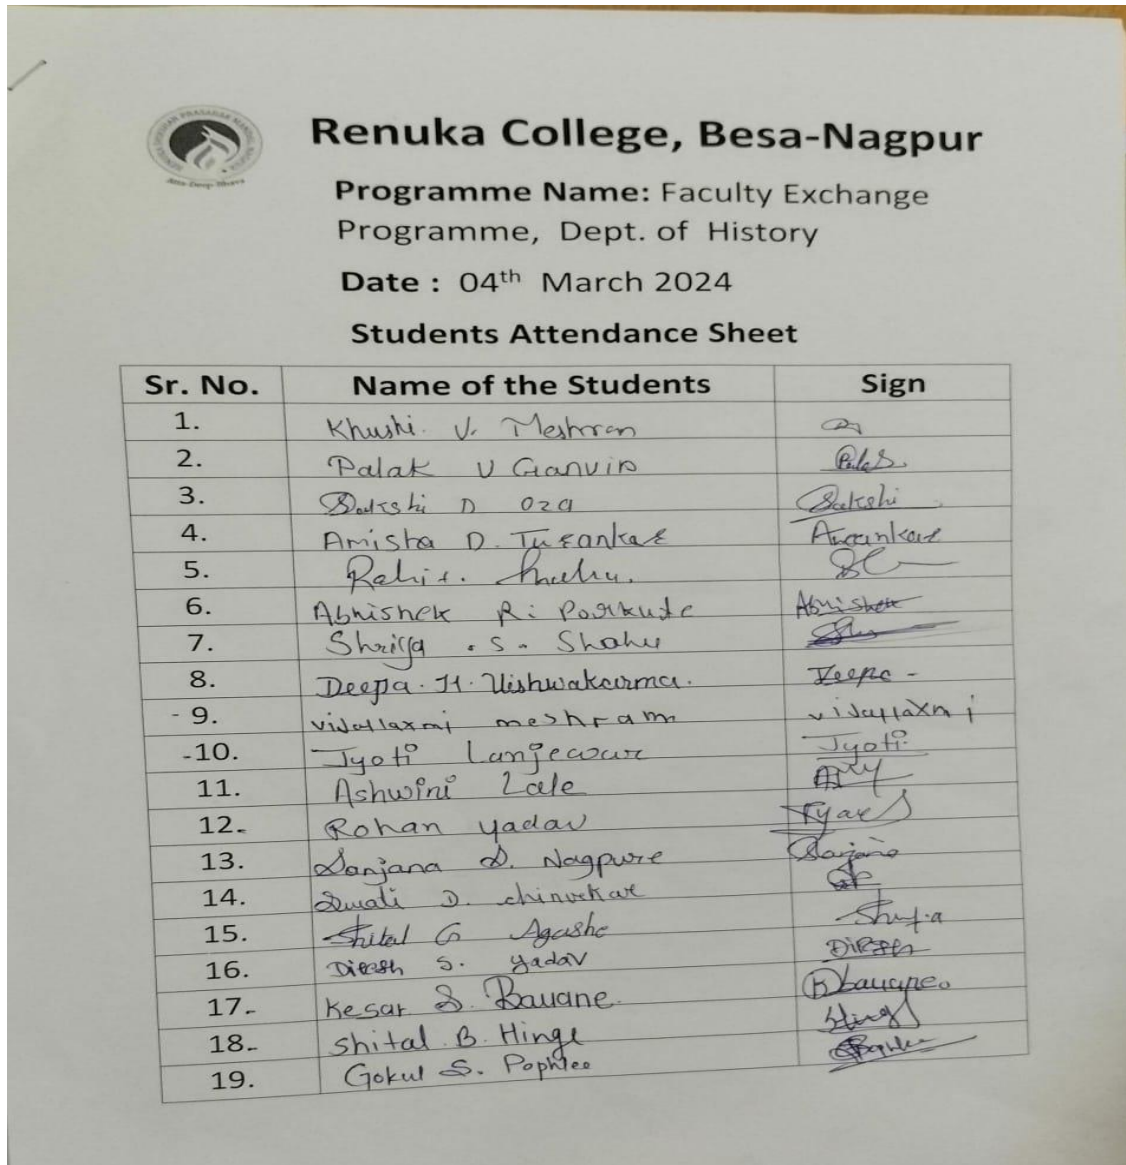 Renuka College, Besa-Nagpur
Programme Name: Faculty Exchange
Programme, Dept. of History
Date : 04th March 2024
Students Attendance Sheet
Sr. No. Name of the Students Sign
1. Khushi. V. Meshram
2. Palak V Ganvir
3. Sakshi D Oza Sakshi
4. Amisha D. Turankar
5.
6. Abhishek R. Abhishek
7. Shriya .S. Shahu
8. Deepa. H. Vishwakarma. Deepa -
- 9. vijaylaxmi meshram vijaylaxmi
-10. Jyoti Lanjewar Jyoti.
11. Ashwini Lale
12- Rohan yadav
13. Sanjana S. Nagpure Sanjana
14. Swati D.
15. Shital G Agashe
16. S. yadav
17- Kesar S. Bavane. KBavane.
18- Shital . B. Hinge Hinge
19. Gokul S.